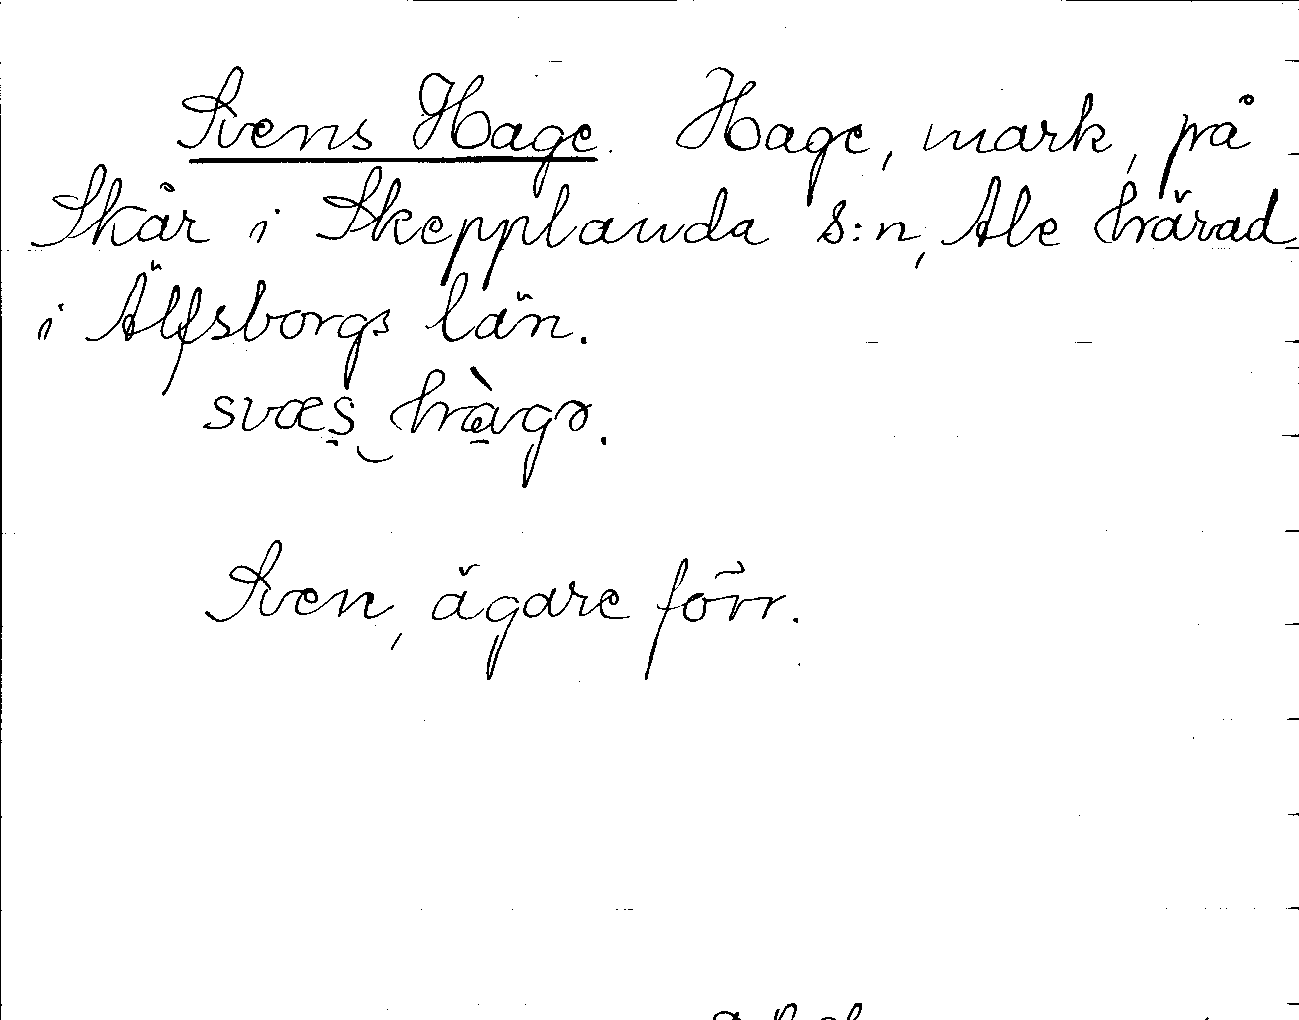 Svens Hage. Hage, mark, på
Skår i Skepplanda s:n, Ale härad
i Älfsborgs län.
svæs hàgə.
Sven, ägare förr.